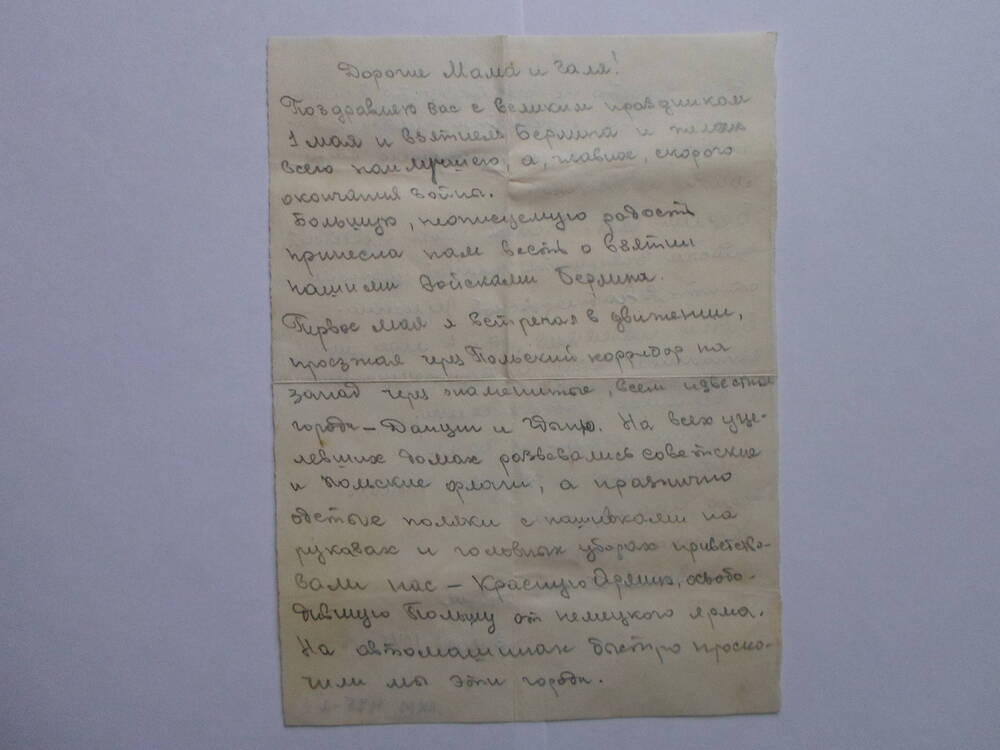 Дорогие Мама и Галя!
Поздравляю вас с великим праздником
1 мая и взятием Берлина и желаю
всего наилучшего, а, главное, скорого
окончания войны.
Большую, неописуемую радость
принесла нам весть о взятии
нашими войсками Берлина.
Первое мая я встречал в движении,
проезжая через Польский корридор на
запад через знаменитые, всем известные
города – Данциг и Гдыню. На всех уце-
левших домах развевались советские
и польские флаги, а празнично
одетые поляки с нашивками на
рукавах и головных уборах приветство-
вали нас – Красную Армию, освобо-
дившую Польшу от немецкого ярма.
На автомашинах быстро проско-
чили мы эти города.